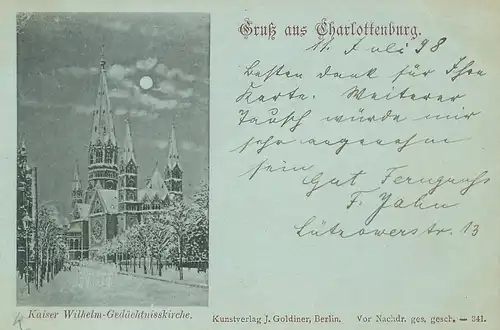 Gruß aus Charlottenburg.
11. Juli 98
Besten Dank für Ihre
Karte. Weiterer
Tausch würde mir
sehr angenehm
sein
Gut Ferngruß
F. Jahn
Lützowerstr. 13
Kaiser Wilhelm-Gedächtnisskirche.
Kunstverlag J. Goldiner, Berlin. Vor Nachdr. ges. gesch. — 341.